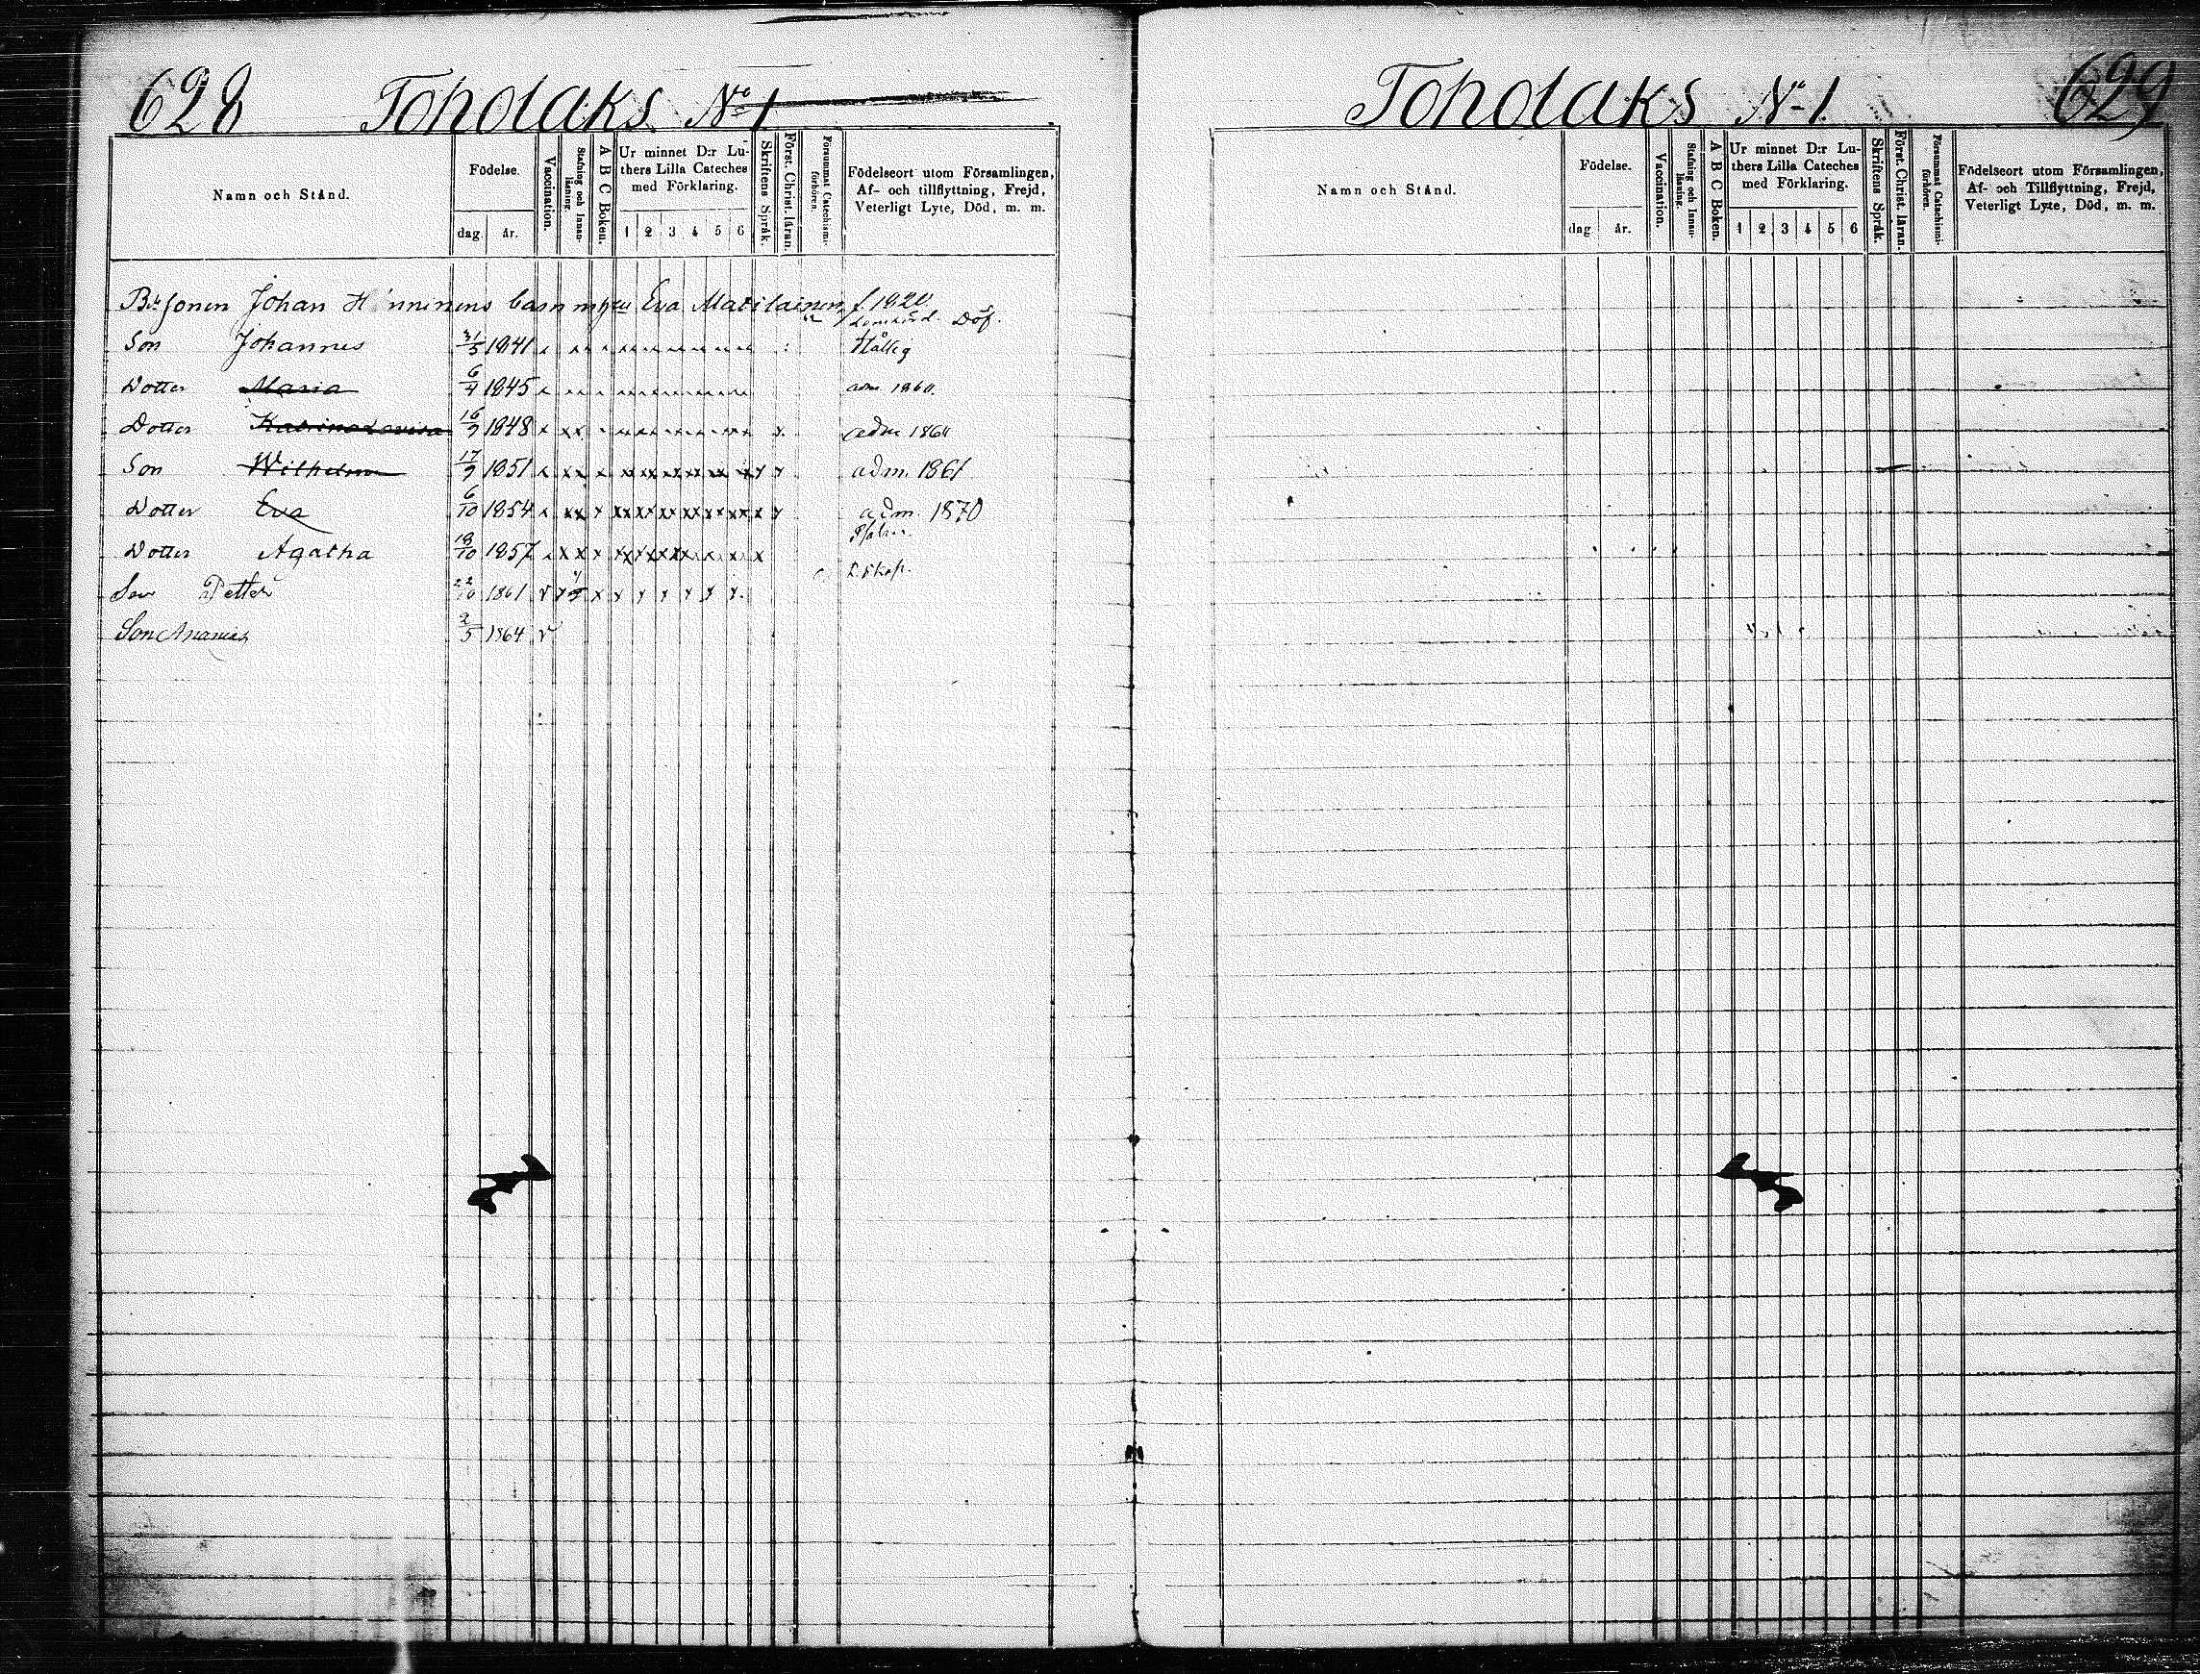 628 Toholaks No 1
Namn och Stånd.
Födelse.
dag. år.
Vaccination.
Stafning och Innanläsning.
A B C Boken.
Ur minnet D:r Luthers Lilla Cateches med Förklaring.
1 2 3 4 5 6
Skriftens Språk.
Först. Christ. läran.
Försummat Catechismiförhören.
Födelseort utom Församlingen,
Af- och tillflyttning, Frejd,
Veterligt Lyte, Död, m. m.
Johan Hinninens barn Eva Matilainen f. 1820.
Döf.
Son Johannes 31/5 1841
Dotter Maria 6/4 1845 adm. 1860.
Dotter Katrina Lovisa 16/9 1848 adm 1864
Son Wilhelm 17/9 1851 adm. 1867
Dotter Eva 6/10 1854 adm. 1870
Dotter Agatha 18/10 1857
Son Petter 22/10 1861
Son Ananias 2/5 1864
Toholaks No 1. 629
Namn och Stånd.
Födelse.
dag år.
Vaccination.
Stafning och Innanläsning.
A B C Boken.
Ur minnet D:r Luthers Lilla Cateches med Förklaring.
1 2 3 4 5 6
Skriftens Språk.
Först. Christ. läran.
Försummat Catechismiförhören.
Födelseort utom Församlingen,
Af- och Tillflyttning, Frejd,
Veterligt Lyte, Död, m. m.